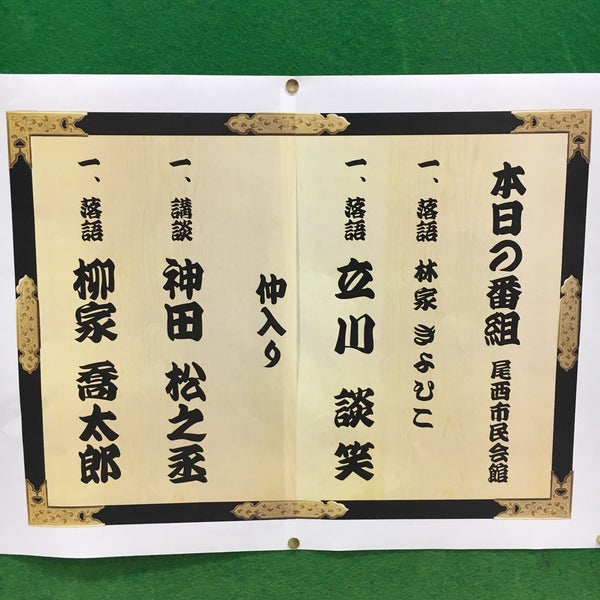 本日の番組 尾西市民会館
一、落語 林家 きよひこ
一、落語 立川 談笑
仲入り
一、講談 神田 松之丞
一、落語 柳家 喬太郎